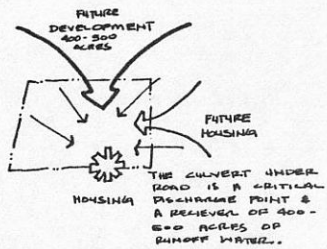 FUTURE
DEVELOPMENT
400-500
ACRES
FUTURE
HOUSING
HOUSING
THE CULVERT UNDER
ROAD IS A CRITICAL
DISCHARGE POINT &
A RECIEVER OF 400-
500 ACRES OF
RUNOFF WATER..